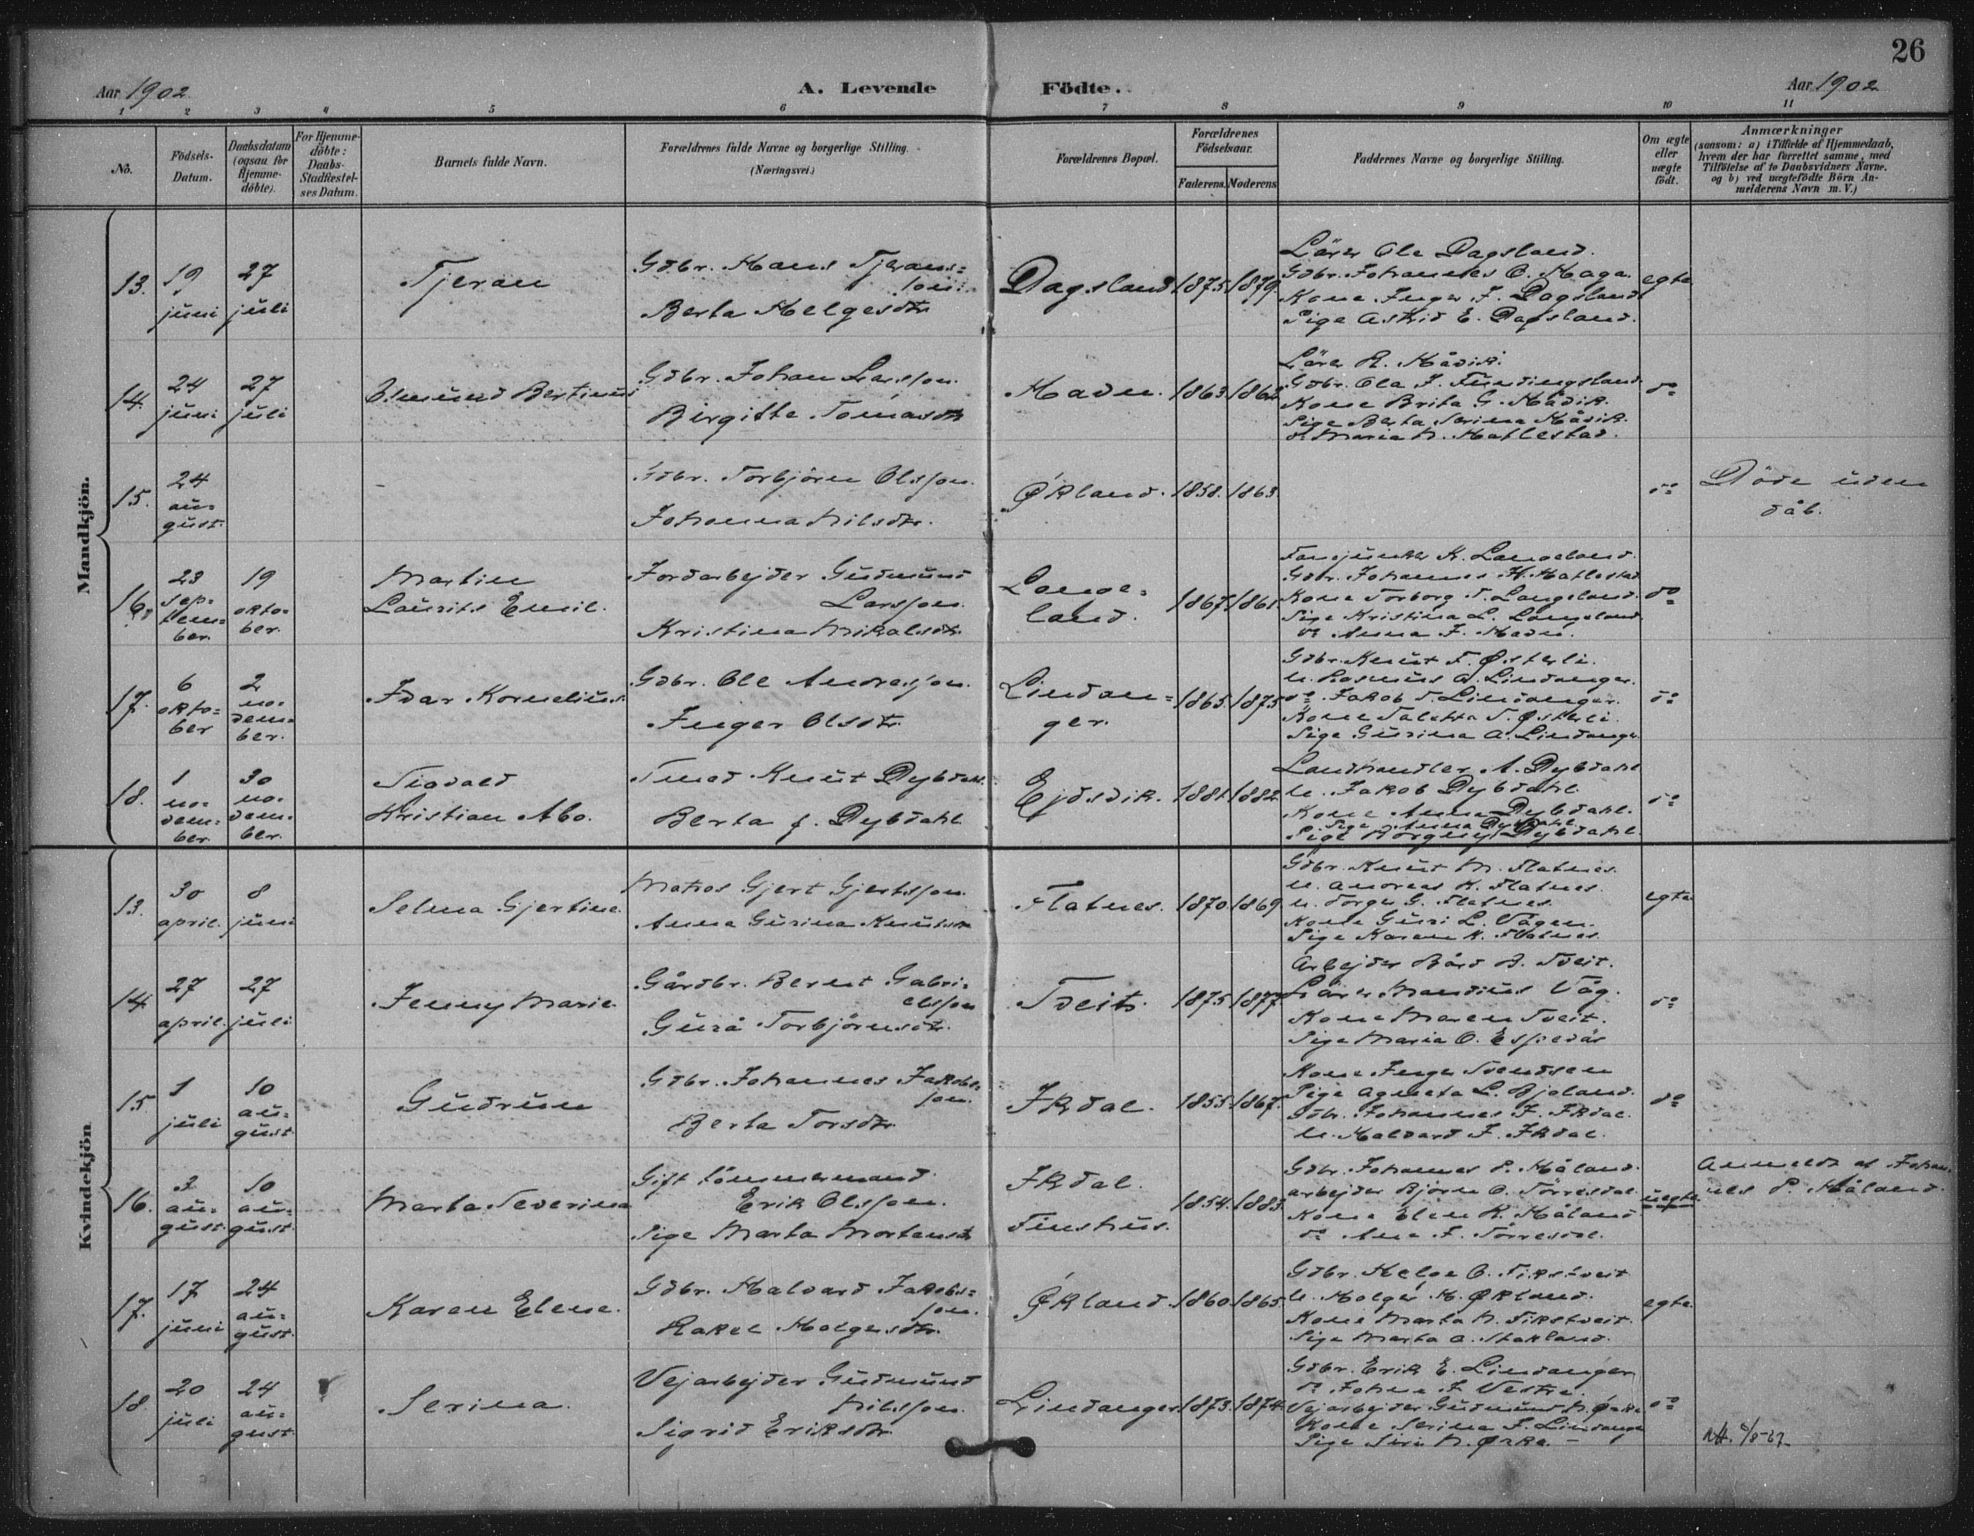 26
Aar 1902
A. Levende Födte.
Aar 1902
1 2 3 4 5 6 7 8 9 10 11
No.
Födsels-Datum.
Daabsdatum (ogsaa for Hjemme-döbte).
For Hjemme-döbte: Daabs-Stadfæstel-ses Datum.
Barnets fulde Navn.
Forældrenes fulde Navne og borgerlige Stilling. (Næringsvei.)
Forældrenes Bopæl.
Forældrenes Födselsaar.
Faderens. Moderens
Faddernes Navne og borgerlige Stilling.
Om ægte eller uægte födt.
Anmærkninger
(saasom: a) i Tilfælde af Hjemmedaab, hvem der har forrettet samme, med Tilföielse af to Daabsvidners Navne, og b) ved uægtefödte Börn An-melderens Navn m. V.)
Mandkjön.
13. 19 juni 27 juli Tjeran
Gdbr. Hans Tjerans=son.
Berta Helgesdtr
Dagsland 1875 1879
Lärer Ole Dagsland.
Gdbr. Johannes O. Haga.
Kone Inger J. Dagsland
Pige Astrid E. Dagsland.
egte
14. 24 juni 27 juli Osmund Bertinus
Gdbr. Johan Larsson.
Birgitte Tomasdtr
Havn. 1863 1862
Lärer R. Håvik.
Gdbr. Ola J. Fundingsland.
Kone Brita G. Håvik.
Pige Berta Serina Håvik.
do Maria N. Hatlestad.
do
15. 24 august.
Gdbr. Torbjörn Olsson.
Johanna Nilsdtr.
Økland. 1858. 1863.
do
Döde uden dåb.
16. 23 september. 19 oktober. Martin Laurits Emil.
Jordarbejder Gudmund Larsson.
Kristina Nikolsdtr.
Langeland. 1867 1861
K. Langeland.
Gdbr. Johannes H. Hatlestad
Kone Torborg T. Langeland.
Pige Kristina L. Langeland
do Anna J. Havn.
do
17. 6 oktober 2 november. Ivar Kornelius.
Gdbr. Ole Andreasson.
Inger Olsdtr
Lindanger. 1865 1875
Gdbr. Knut T. Østerli.
U. Rasmus A. Lindanger.
do Jakob T. Lindanger.
Kone Taletta T. Østerli.
Pige Gurina A. Lindanger
do
18. 1 november. 30 november. Sigvald Kristian Abo.
Smed Knut Dybdahl.
Berta f. Dybdahl
Ejdsvik. 1881. 1882.
Landhandler A. Dybdahl
U. Jakob Dybdahl.
Kone Anna Dybdahl.
Pige Anna Dybdahl.
Pige Borgny Dybdahl.
do
Kvindekjön
13. 30 april. 8 juni Selma Gjertine.
Matros Gjert Gjertsson.
Anna Gurina Knutsdtr
Flatnes. 1870 1869
Gdbr. Knut M. Flatnes.
U. Andreas K. Flatnes.
U. Torger G. Flatnes.
Kone Guri L. Vågen.
Pige Karen K. Flatnes.
egte
14. 27 april. 27 juli Jenny Marie
Gårdbr. Bernt Gabrielsson
Gurå Torbjörnsdtr.
Tveit. 1875 1877
Arbejder Bård B. Tveit.
Lärer Mandius Våg.
Kone Maren Tveit.
Pige Maria O. Espevär
do
15 1 juli 10 august Gudrun
Gdbr. Johannes Jakobsson.
Berta Torsdtr
Ikdal. 1855 1867
Kone Inger Svendsen
Pige Agneta L. Bjoland.
Gdbr. Johannes J. Ikdal
U. Halvard J. Ikdal.
do
16. 3 august. 10 august. Marta Severina
Gift tömmermand Erik Olsson.
Pige Marta Mortensdtr
Ikdal. Finshus. 1854. 1883
Gdbr. Johannes P. Håland.
arbejder Bjørn O. Törresdal
Kone Elen K. Håland
do Ana J. Törresdal.
uegte
Anmeldt af Johannes P. Håland.
17. 17 juni 24 august. Karen Elene.
Gdbr. Halvard Jakobsson.
Rakel Holgersdtr.
Økland. 1860 1865
Gdbr. Helge O. Fikstveit
U. Holger H. Økland.
Kone Marta N. Fikstveit.
Pige Marta A. Stakland.
egte
18. 20 juli 24 august. Serina.
Vejarbejder Gudmund Nilsson.
Sigrid Eriksdtr.
Lindanger. 1873. 1874
Gdbr. Erik E. Lindanger
do Johan J. Vestre.
Vejarbejder Gudmund N. Ørke
Kone Serina J. Lindanger
Pige Siri N. Ørke.
do